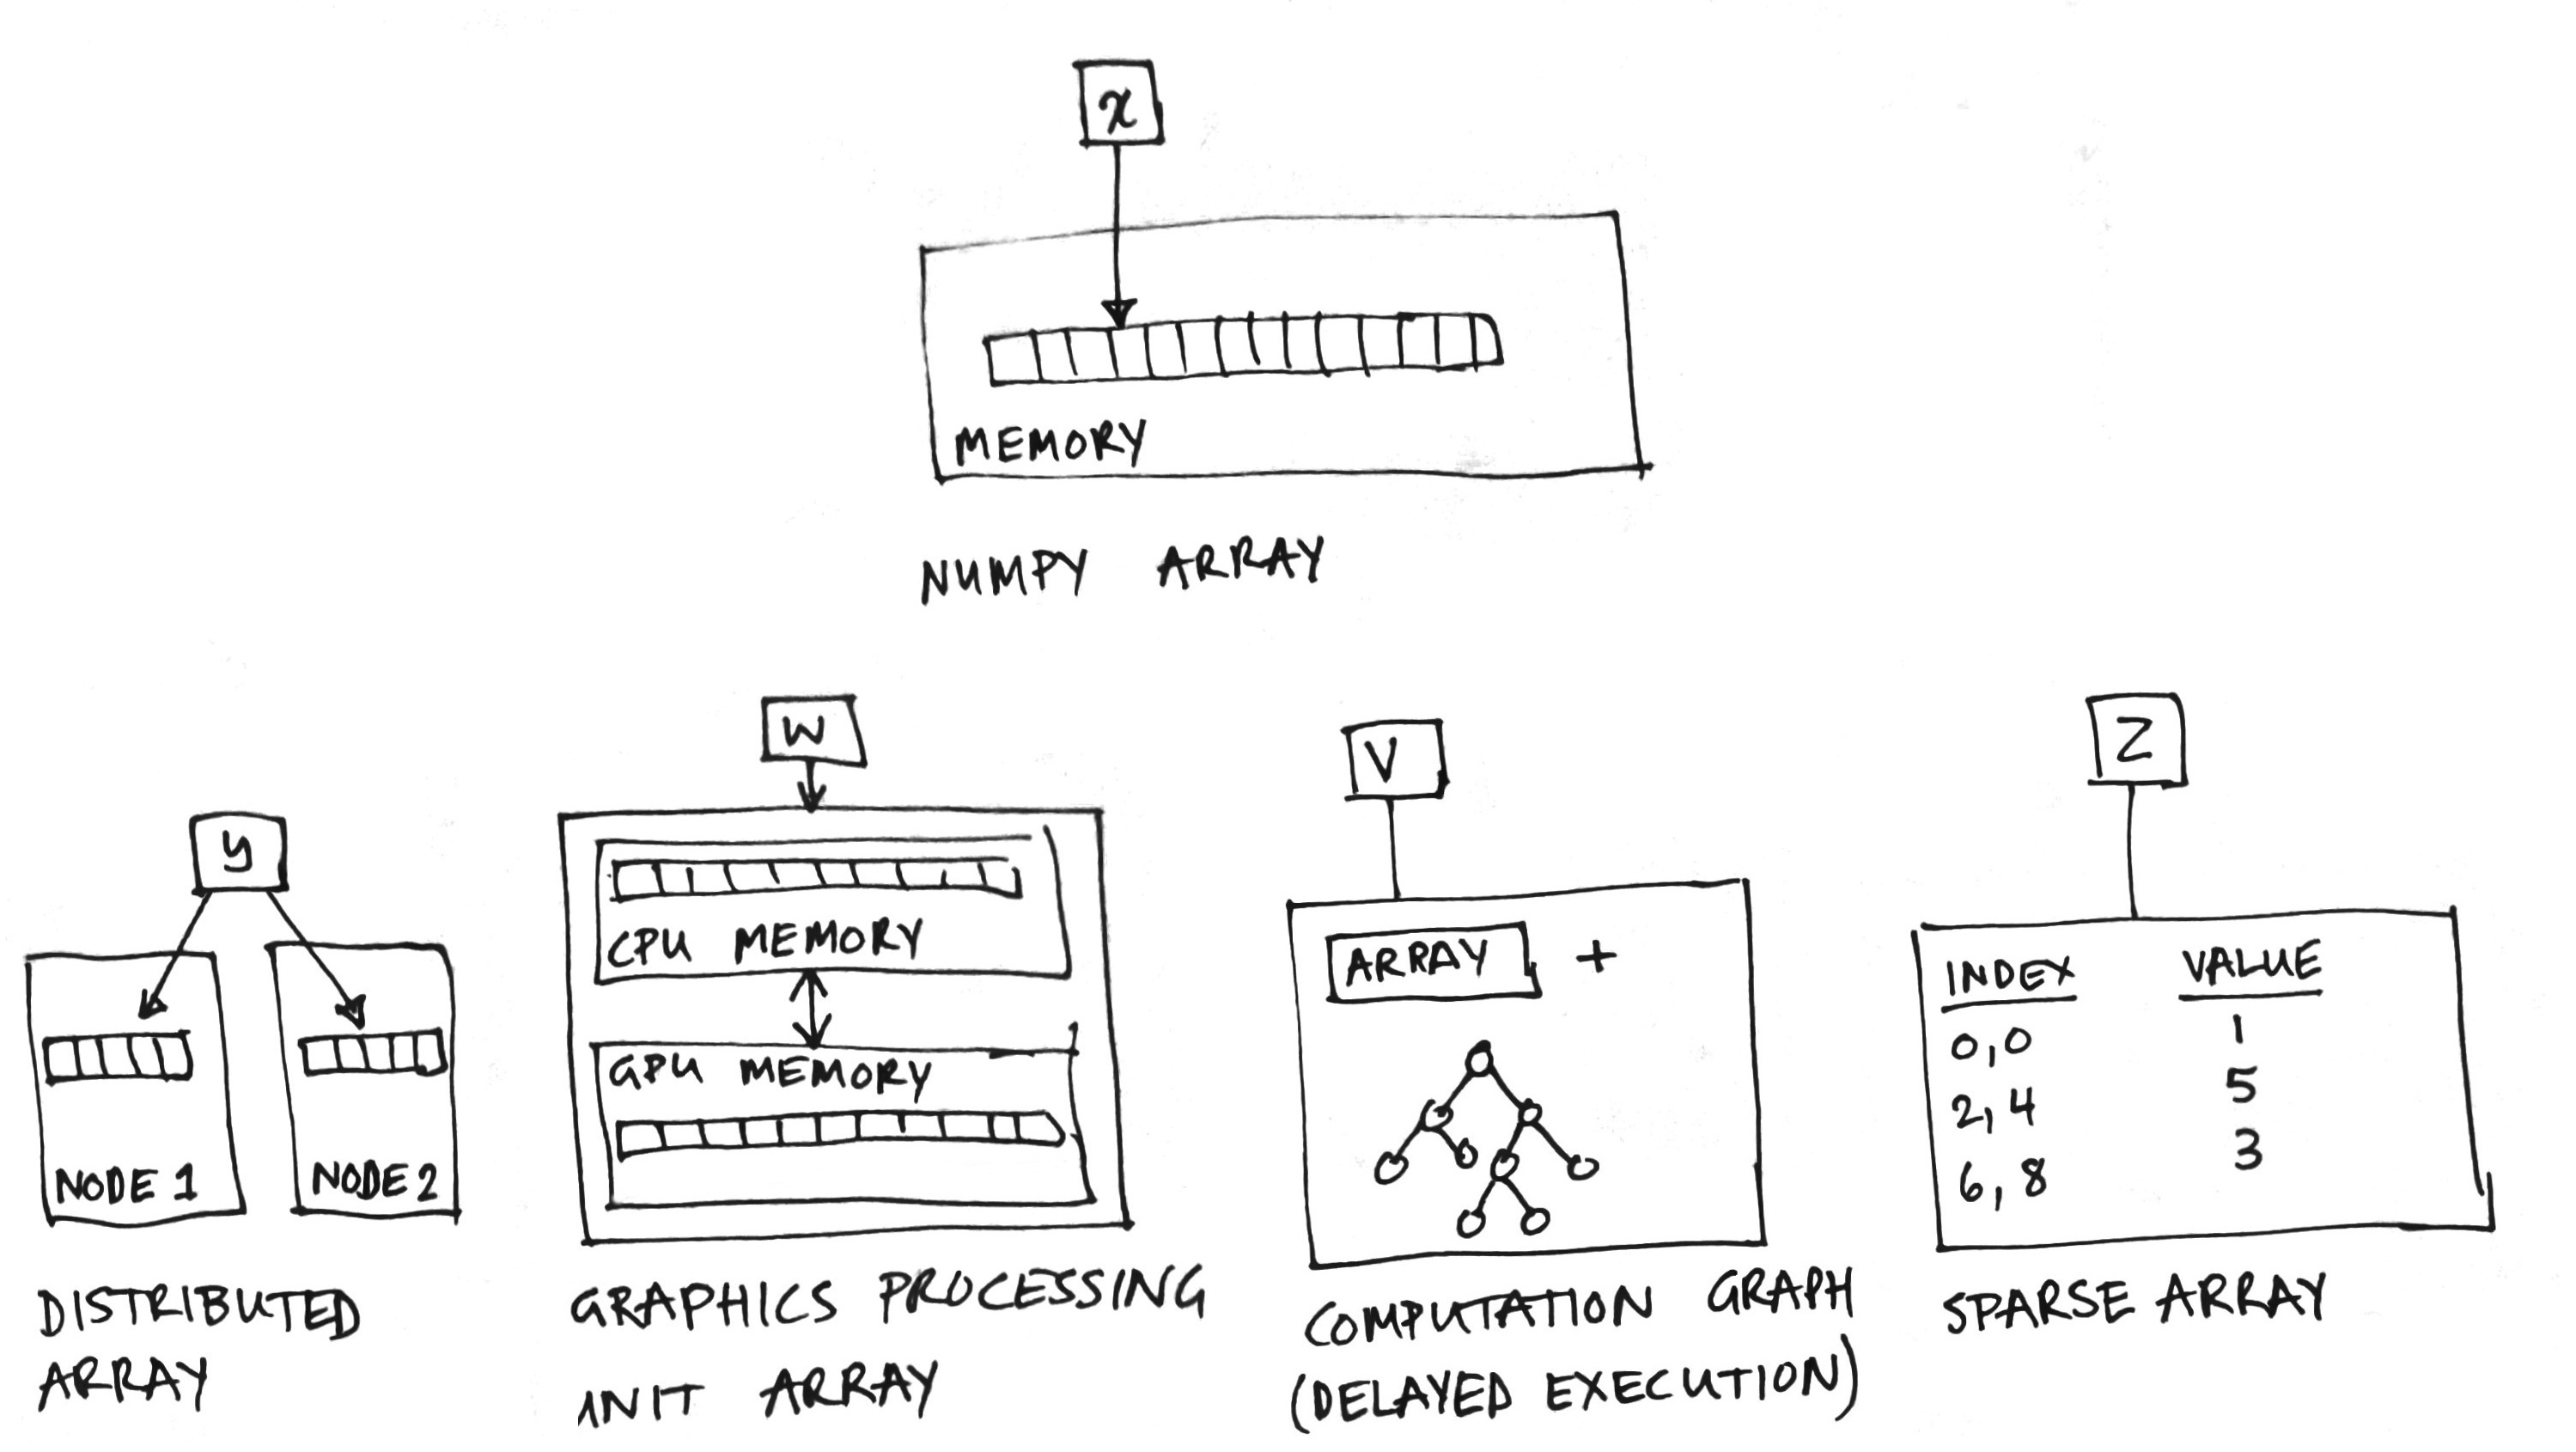 x
MEMORY
NUMPY ARRAY
y
NODE 1
NODE 2
DISTRIBUTED
ARRAY
W
CPU MEMORY
GPU MEMORY
GRAPHICS PROCESSING
UNIT ARRAY
V
ARRAY +
COMPUTATION GRAPH
(DELAYED EXECUTION)
Z
INDEX VALUE
0,0 1
2,4 5
6,8 3
SPARSE ARRAY